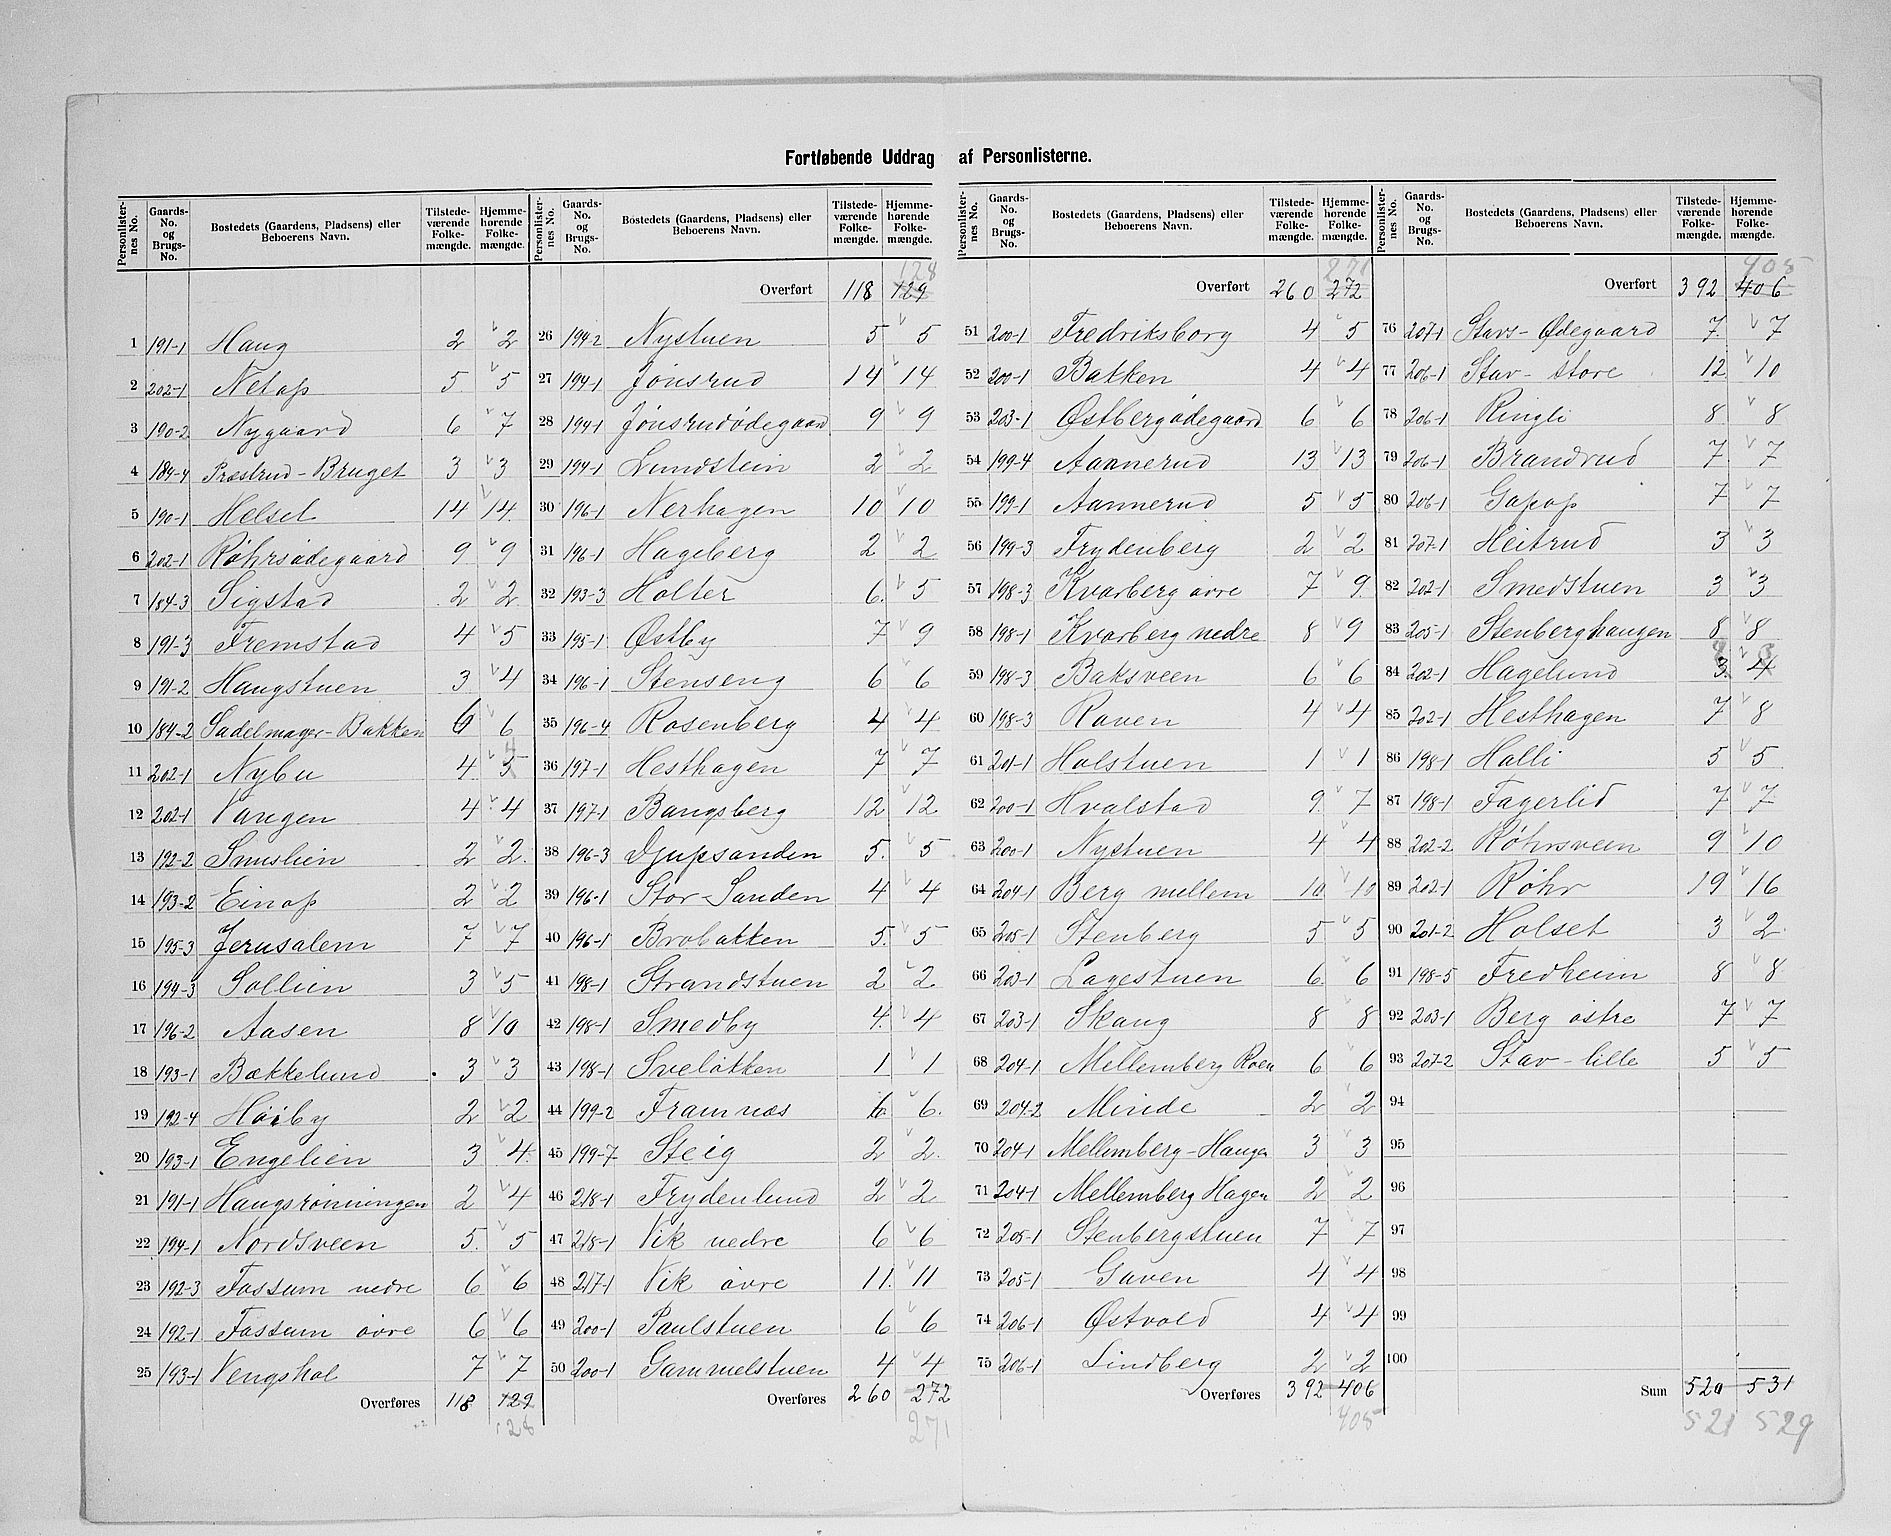 Fortløbende Uddrag af Personlisterne.
Personlister-nes No. | Gaards-No. og Brugs-No. | Bostedets (Gaardens, Pladsens) eller Beboerens Navn. | Tilstede-værende Folke-mængde. | Hjemme-hørende Folke-mængde.
1 191-1 Haug 2 2
2 202-1 Netop 5 5
3 190-2 Nygaard 6 7
4 189-4 Præstrud-Bruget 3 3
5 190-1 Helset 14 14
6 202-1 Røhrsødegaard 9 9
7 184-3 Sigstad 2 2
8 191-3 Fremstad 4 5
9 191-2 Haugstuen 3 4
10 189-2 Sadelmager-Bakken 6 6
11 202-1 Nybu 4 5 4
12 202-1 Vangen 4 4
13 192-2 Smuslien 2 2
14 193-2 Einop 2 2
15 195-3 Jerusalem 7 7
16 194-3 Sollien 3 5
17 196-2 Aasen 8 10
18 193-1 Bækkelund 3 3
19 192-4 Høiby 2 2
20 193-1 Engelien 3 4
21 191-1 Haugsrønningen 2 4
22 194-1 Nordsveen 5 5
23 192-3 Fossum nedre 6 6
24 192-1 Fossum øvre 6 6
25 193-1 Vengshol 7 7
Overføres 118 129
128
Personlister-nes No. | Gaards-No. og Brugs-No. | Bostedets (Gaardens, Pladsens) eller Beboerens Navn. | Tilstede-værende Folke-mængde. | Hjemme-hørende Folke-mængde.
128
Overført 118 129
26 194-2 Nystuen 5 5
27 194-1 Jønsrud 14 14
28 194-1 Jønsrudødegaard 9 9
29 194-1 Lundstein 2 2
30 196-1 Nerhagen 10 10
31 196-1 Hageberg 2 2
32 193-3 Holter 6 5
33 195-1 Østby 7 9
34 196-1 Stenseng 6 6
35 196-4 Rosenberg 4 4
36 197-1 Hesthagen 7 7
37 197-1 Bangsberg 12 12
38 196-3 Djupsanden 5 5
39 196-1 Stor-Sanden 4 4
40 196-1 Brobakken 5 5
41 198-1 Strandstuen 2 2
42 198-1 Smedby 4 4
43 198-1 Sveløkken 1 1
44 199-2 Framnæs 6 6
45 199-7 Steig 2 2
46 218-1 Frydenlund 2 2
47 218-1 Vik nedre 6 6
48 217-1 Vik øvre 11 11
49 200-1 Paulstuen 6 6
50 200-1 Gammelstuen 4 4
Overføres 260 272
271
Personlister-nes No. | Gaards-No. og Brugs-No. | Bostedets (Gaardens, Pladsens) eller Beboerens Navn. | Tilstede-værende Folke-mængde. | Hjemme-hørende Folke-mængde.
271
Overført 260 272
51 200-1 Fredriksborg 4 5
52 200-1 Bakken 4 4
53 203-1 Østbergødegaard 6 6
54 199-4 Aannerud 13 13
55 199-1 Aannerud 5 5
56 199-3 Frydenberg 2 2
57 198-3 Kvarberg øvre 7 9
58 198-1 Kvarberg nedre 8 9
59 198-3 Baksveen 6 6
60 198-3 Raven 4 4
61 201-1 Holstuen 1 1
62 200-1 Hvalstad 9 7
63 200-1 Nystuen 4 4
64 204-1 Berg mellem 10 10
65 205-1 Stenberg 5 5
66 203-1 Lagestuen 6 6
67 203-1 Skaug 8 8
68 204-1 Mellemberg Roen 6 6
69 204-2 Minde 2 2
70 204-1 Mellemberg-Haugen 3 3
71 204-1 Mellemberg Hagen 2 2
72 205-1 Stenbergstuen 7 7
73 205-1 Gaven 4 4
74 206-1 Østvold 4 4
75 206-1 Lindberg 2 2
Overføres 392 406
405
Personlister-nes No. | Gaards-No. og Brugs-No. | Bostedets (Gaardens, Pladsens) eller Beboerens Navn. | Tilstede-værende Folke-mængde. | Hjemme-hørende Folke-mængde.
405
Overført 392 406
76 207-1 Stavs-Ødegaard 7 7
77 206-1 Stav-store 12 10
78 206-1 Ringli 8 8
79 206-1 Brandrud 7 7
80 206-1 Gapop 7 7
81 207-1 Heitrud 3 3
82 202-1 Smedstuen 3 3
83 205-1 Stenberghaugen 8 8
84 202-1 Hagelund 3 4
85 202-1 Hesthagen 7 8
86 198-1 Halli 5 5
87 198-1 Fagerlid 7 7
88 202-2 Røhrsveen 9 10
89 202-1 Røhr 19 16
90 201-2 Holset 3 2
91 198-5 Fredheim 8 8
92 203-1 Berg østre 7 7
93 207-2 Stav-lille 5 5
94
95
96
97
98
99
100
Sum 520 531
521 529